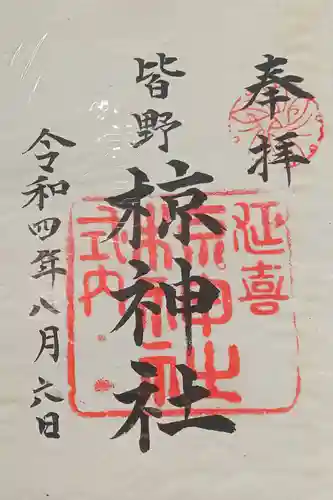 奉拝
延喜
皆野
椋神社
式内
椋神社
令和四年八月六日